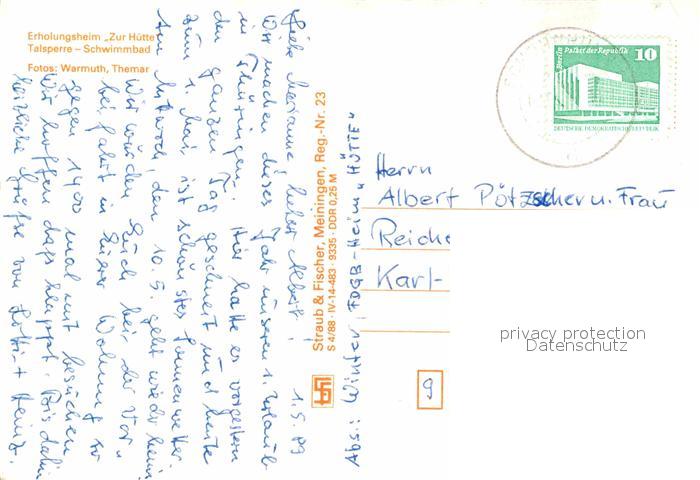 Erholungsheim „Zur Hütte
Talsperre – Schwimmbad
Fotos: Warmuth, Themar
1.5.89
Liebe Marianne, lieber Albert!
Wir machen dieses Jahr unseren 1. Urlaub
in Thüringen. Hier hatte es vorgestern
den ganzen Tag geschneit und heute
zum 1. Mai ist schönstes Sonnenwetter.
Am Mittwoch, den 10.5. geht wieder heim.
Wir würden Euch bei der Vor-
beifahrt in Eurer Wohnung so
gegen 14 00 mal mit besuchen.
Wir hoffen daß klappt. Bis dahin
herzliche Grüße von Lotti + Heinz.
Straub & Fischer, Meiningen, Reg.-Nr. 23
S 4/88 · IV-14-483 · 9335 · DDR 0,25 M
Abs.: Winter, FDGB-Heim „HÜTTE"
Berlin Palast der Republik 10
DEUTSCHE DEMOKRATISCHE REPUBLIK
Herrn
Albert Pötzscher u. Frau
Reiche
Karl-
9
privacy protection
Datenschutz